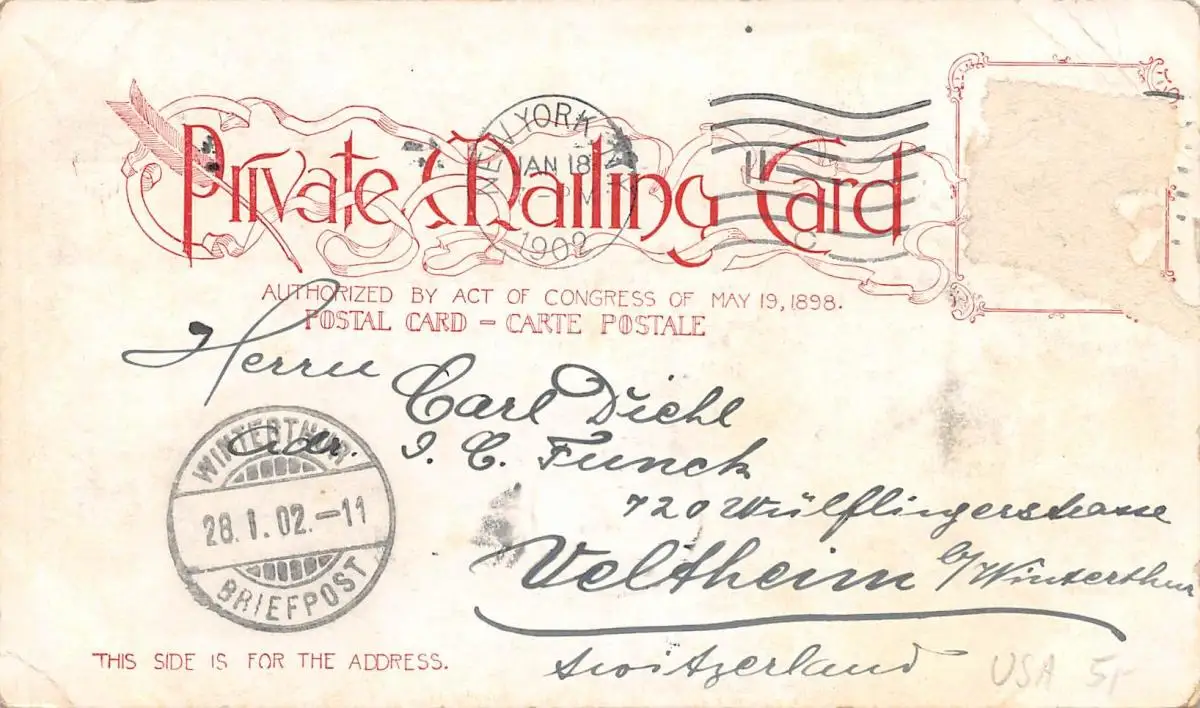 Private Mailing Card
NEW YORK N.Y.
JAN 18
PM
1902
AUTHORIZED BY ACT OF CONGRESS OF MAY 19, 1898.
POSTAL CARD – CARTE POSTALE
Herrn Carl Diehl
Adr. J. C. Funck
720 Wülflingerstrasse
Veltheim b/Winterthur
Switzerland
WINTERTHUR
28.I.02.–11
BRIEFPOST
THIS SIDE IS FOR THE ADDRESS.
USA 5.-